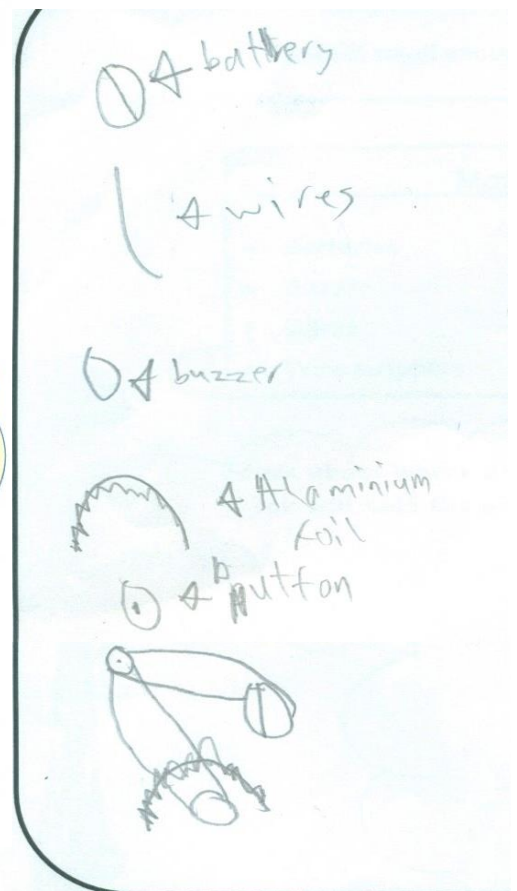 battery
wires
buzzer
Alaminium
foil
button